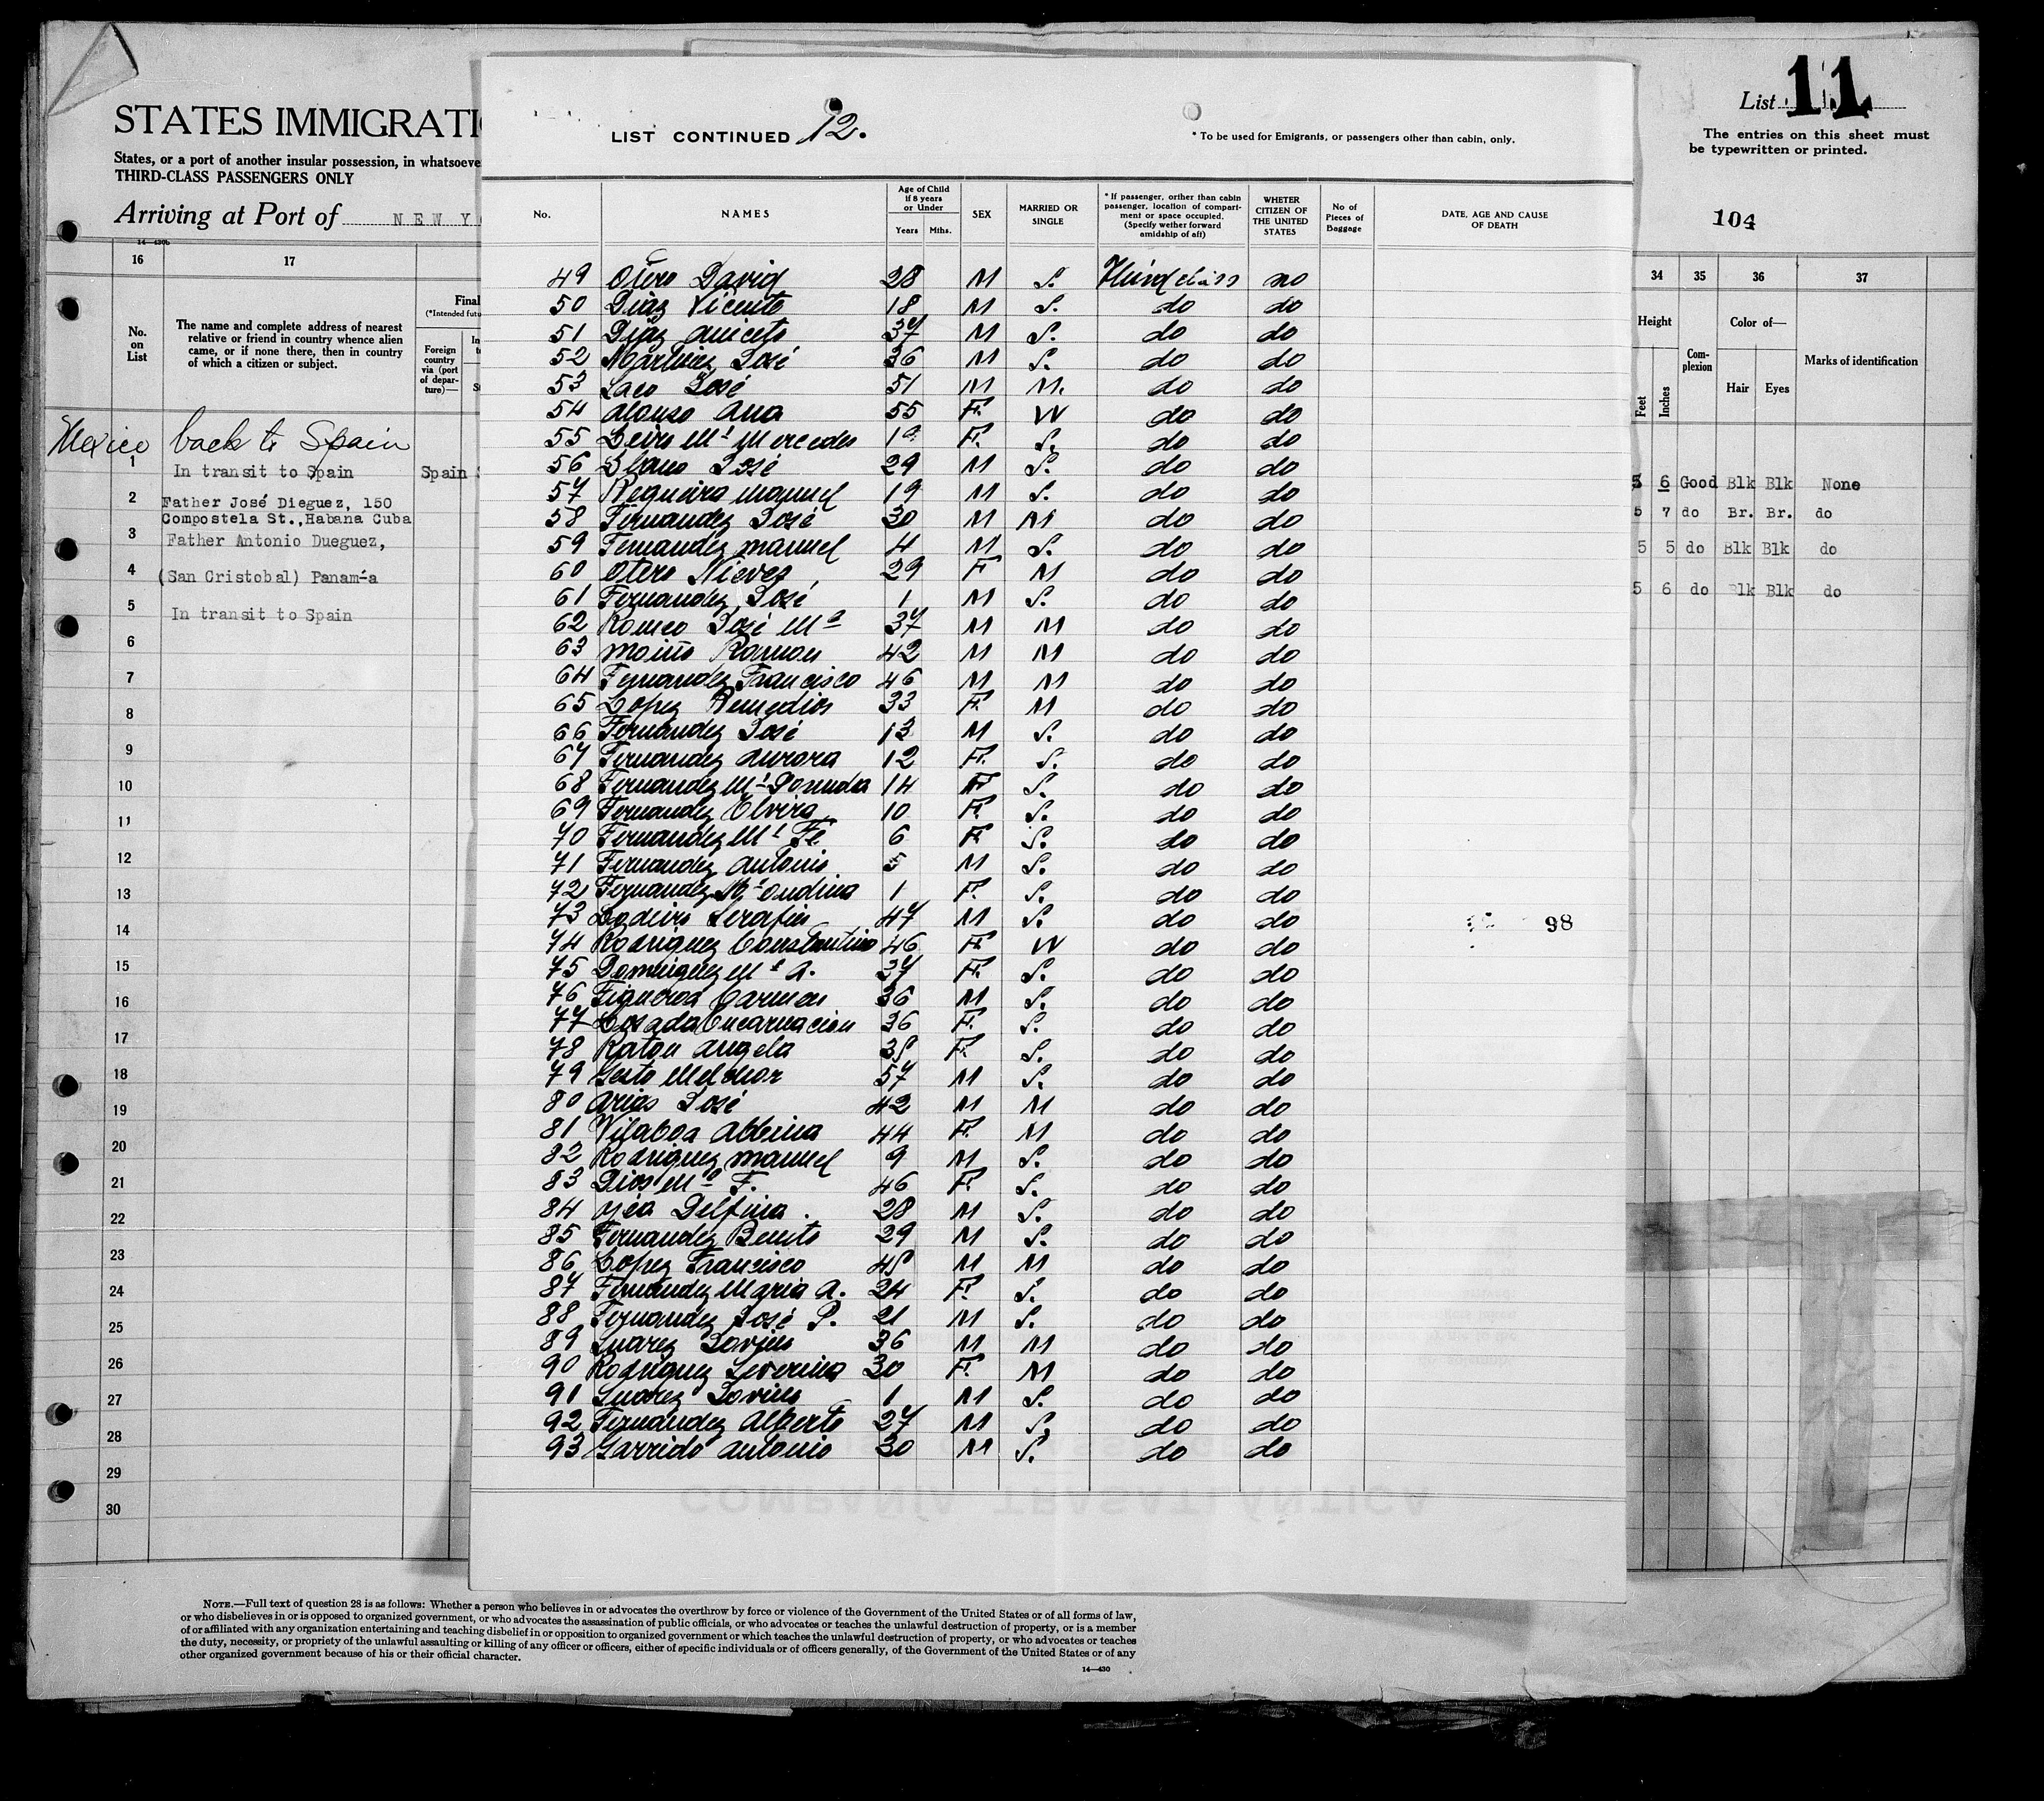 STATES IMMIGRATI
States, or a port of another insular possession, in whatsoeve
THIRD-CLASS PASSENGERS ONLY
Arriving at Port of NEW Y
14—430b
16 17
No. on List
The name and complete address of nearest relative or friend in country whence alien came, or if none there, then in country of which a citizen or subject.
Final
(*Intended futu
Foreign country via (port of departure)—
Mexico back to Spain
1 In transit to Spain Spain
2 Father José Dieguez, 150
Compostela St.,Habana Cuba
3 Father Antonio Dueguez,
4 (San Cristobal) Panam-a
5 In transit to Spain
6
7
8
9
10
11
12
13
14
15
16
17
18
19
20
21
22
23
24
25
26
27
28
29
30
LIST CONTINUED 12.
* To be used for Emigrants, or passengers other than cabin, only.
No. NAMES Age of Child if 8 years or Under Years Mths. SEX MARRIED OR SINGLE * If passenger, oriher than cabin passenger, location of compartiment or space occupied. (Specify wether forward amidship of aft) WHETER CITIZEN OF THE UNITED STATES No of Pieces of Baggage DATE, AGE AND CAUSE OF DEATH
49 Otero David 28 M S. Third class no
50 Diaz Vicente 18 M S. do do
51 Diaz Aniceto 37 M S. do do
52 Martinez José 36 M S. do do
53 Laco José 51 M M. do do
54 Alonso Ana 55 F. W do do
55 Mª Mercedes 19 F. S. do do
56 José 29 M S. do do
57 Regueira Manuel 19 M S. do do
58 Fernandez José 30 M M do do
59 Fernandez Manuel 4 M S. do do
60 Otero Nieves 29 F M do do
61 Fernandez José 1 M S. do do
62 Romeo José Mª 37 M M do do
63 Moiño Ramon 42 M M do do
64 Fernandez Francisco 46 M M do do
65 Lopez Remedios 33 F. M do do
66 Fernandez José 13 M S. do do
67 Fernandez Aurora 12 F. S. do do
68 Fernandez Mª 14 F S. do do
69 Fernandez Elvira 10 F. S. do do
70 Fernandez Mª Fé 6 F. S. do do
71 Fernandez Antonio 5 M S. do do
72 Fernandez Mª Ondina 1 F. S. do do
73 Serafin 47 M S. do do 98
74 Rodriguez Constantino 46 F. W do do
75 Dominguez Mª A. 37 F. S. do do
76 Figueroa Carmen 36 M S. do do
77 Losada Encarnacion 36 F. S. do do
78 Raton Angela 35 F. S. do do
79 Sexto Melchor 57 M S. do do
80 Arias José 42 M M do do
81 Vilaboa Albina 44 F. M do do
82 Rodriguez Manuel 9 M S. do do
83 Dios Mª F. 46 F. S. do do
84 Delfina. 28 M S. do do
85 Fernandez Benito 29 M S. do do
86 Lopez Francisco 45 M M do do
87 Fernandez Maria A. 24 F. S. do do
88 Fernandez José P. 21 M S. do do
89 Suarez 36 M M do do
90 Rodriguez Severina 30 F. M do do
91 Suarez 1 M S. do do
92 Fernandez Alberto 27 M S. do do
93 Garrido Antonio 30 M S. do do
COMPAÑIA TRASATLANTICA
List 11
The entries on this sheet must be typewritten or printed.
104
34 35 36 37
Height Complexion Color of— Marks of identification
Feet Inches Hair Eyes
5 6 Good Blk Blk None
5 7 do Br. Br. do
5 5 do Blk Blk do
5 6 do Blk Blk do
NOTE.—Full text of question 28 is as follows: Whether a person who believes in or advocates the overthrow by force or violence of the Government of the United States or of all forms of law,
or who disbelieves in or is opposed to organized government, or who advocates the assassination of public officials, or who advocates or teaches the unlawful destruction of property, or is a member
of or affiliated with any organization entertaining and teaching disbelief in or opposition to organized government or which teaches the unlawful destruction of property, or who advocates or teaches
the duty, necessity, or propriety of the unlawful assaulting or killing of any officer or officers, either of specific individuals or of officers generally, of the Government of the United States or of any
other organized government because of his or their official character.
14—430